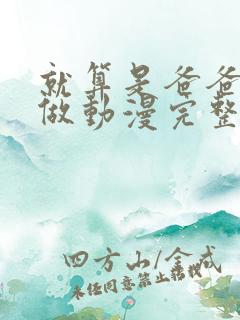 就算是爸爸
做動漫完整
四方山/全戒
未任同意禁止转找